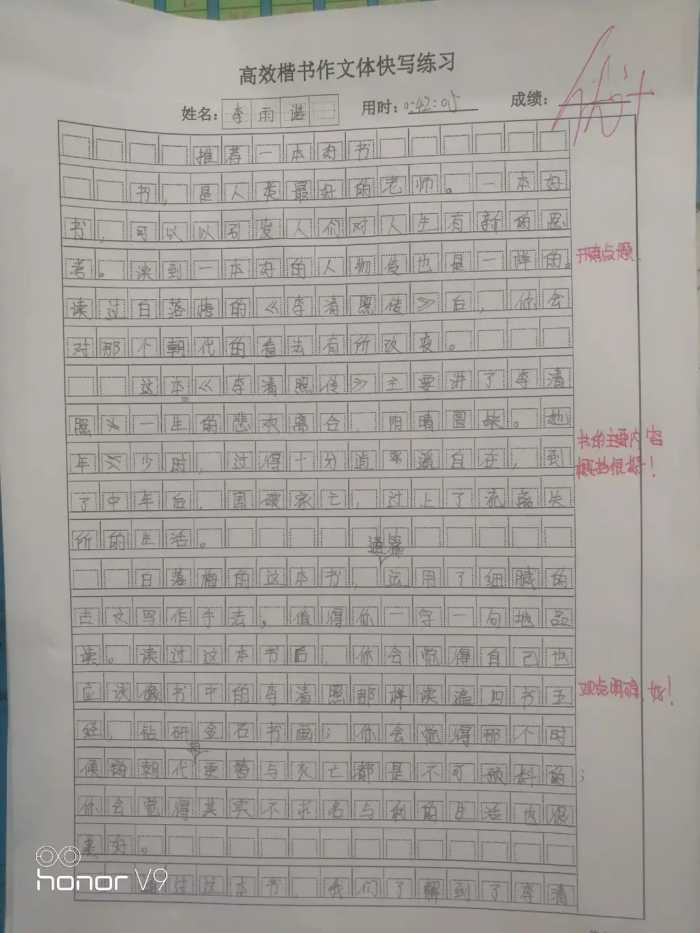 高效楷书作文体快写练习
姓名：李雨谌 用时：0:42:05 成绩：
推荐一本好书
书，是人类最好的老师。一本好
书，可以以引发人们对人生有新的思
考。谈到一本好的人物传也是一样的。
开篇点题
读过白落梅的《李清照传》后，你会
对那个朝代的看法有所改变。
这本《李清照传》主要讲了李清
照一生的悲欢离合，阴晴圆缺。她
书的主要内容
概括很好！
年少时，过得十分逍遥自在，到
了中年后，国破家亡，过上了流离失
所的生活。
白落梅的这本书，运用了细腻的
古文写作手法，值得你一字一句地品
读。读过这本书后，你会觉得自己也
应该像书中的李清照那样读遍四书五
观点明确，好！
经，钻研金石书画；你会觉得那个时
候的朝代更替与灭亡都是不可预料的；
你会觉得其实不求名与利的生活也很
美好。
这本书，我们了解到了李清
honor V9